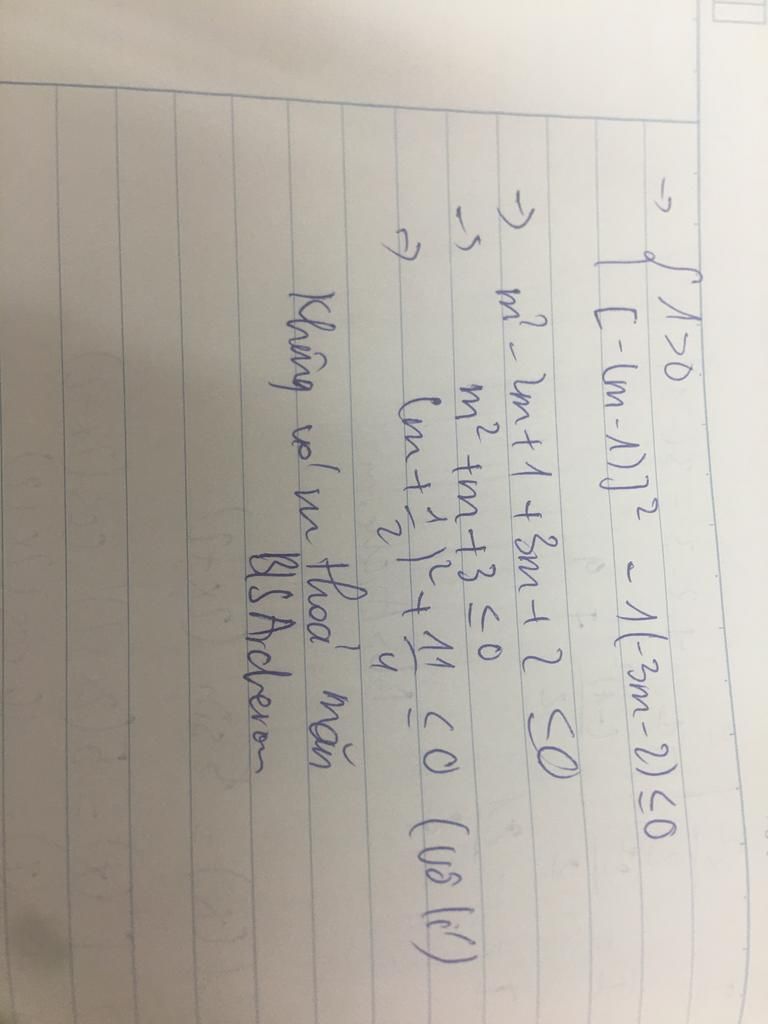 → { 1 > 0
[-(m-1)]² - 1(-3m-2) ≤ 0
⇒ m² - 2m + 1 + 3m + 2 ≤ 0
→ m² + m + 3 ≤ 0
⇒ (m + 1/2)² + 11/4 ≤ 0 (vô lí)
Không có m thoả mãn
BIS Acheron